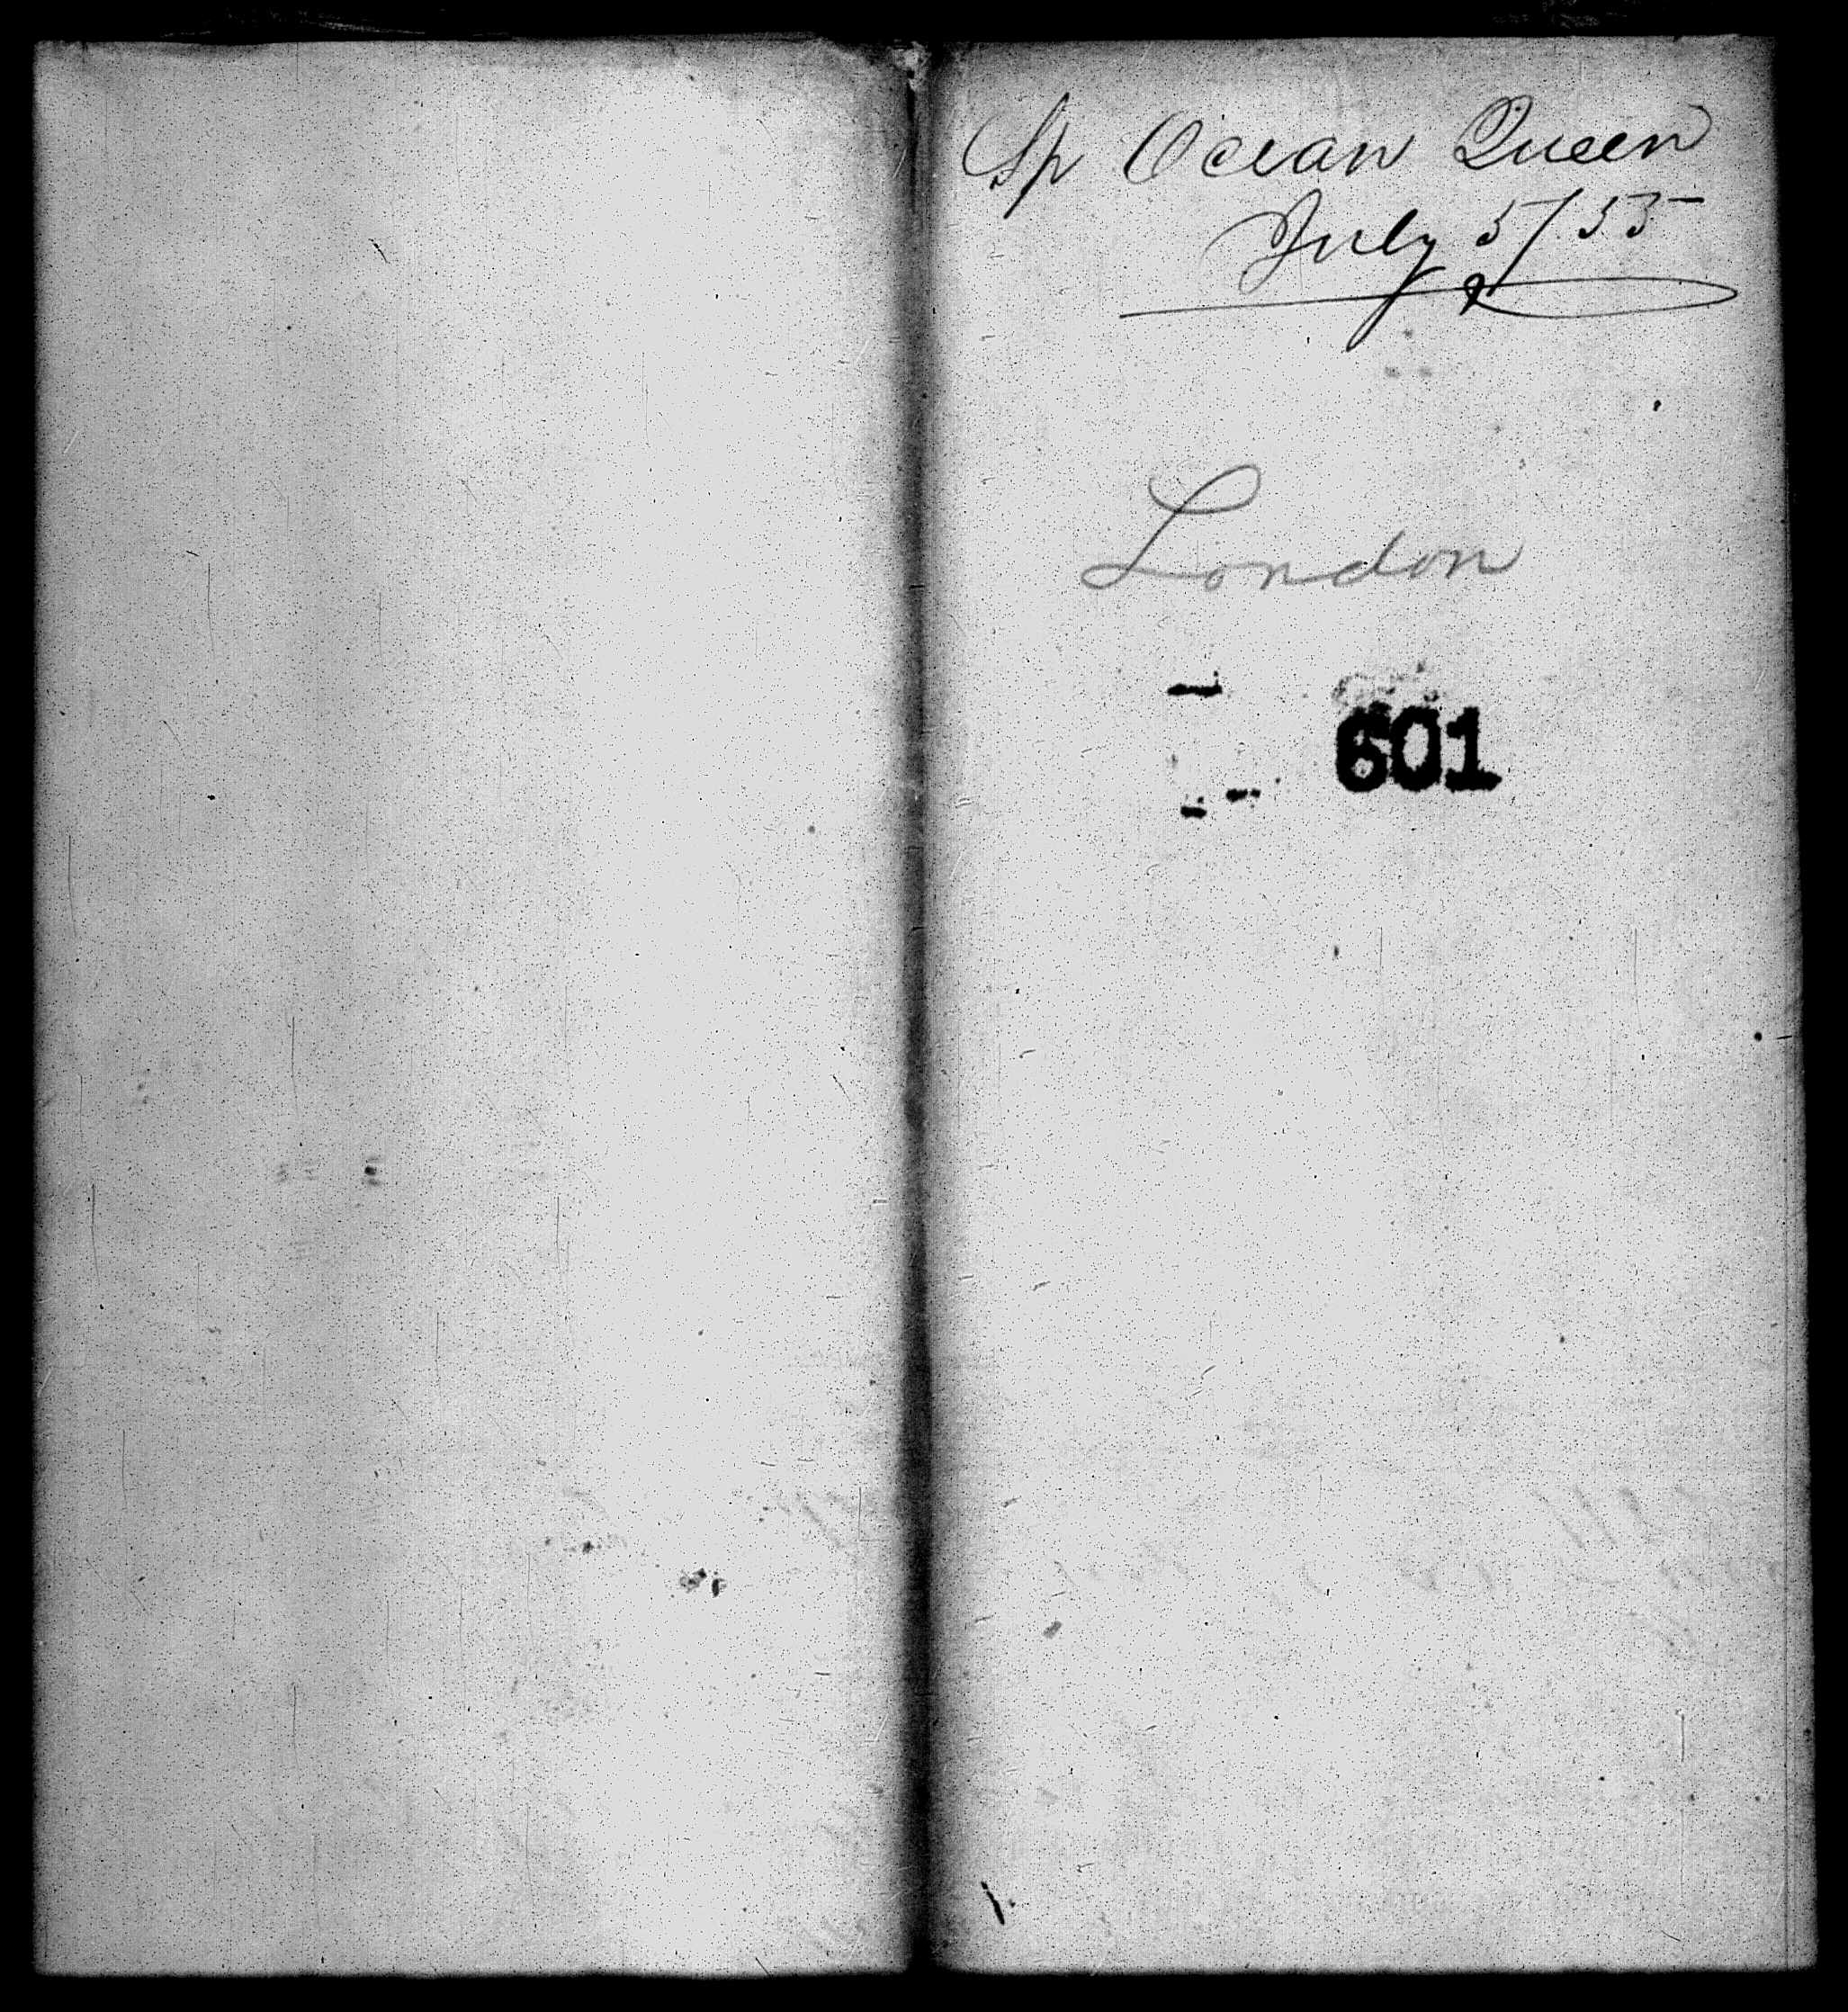 Sp Ocean Queen
July 5/55
London
601